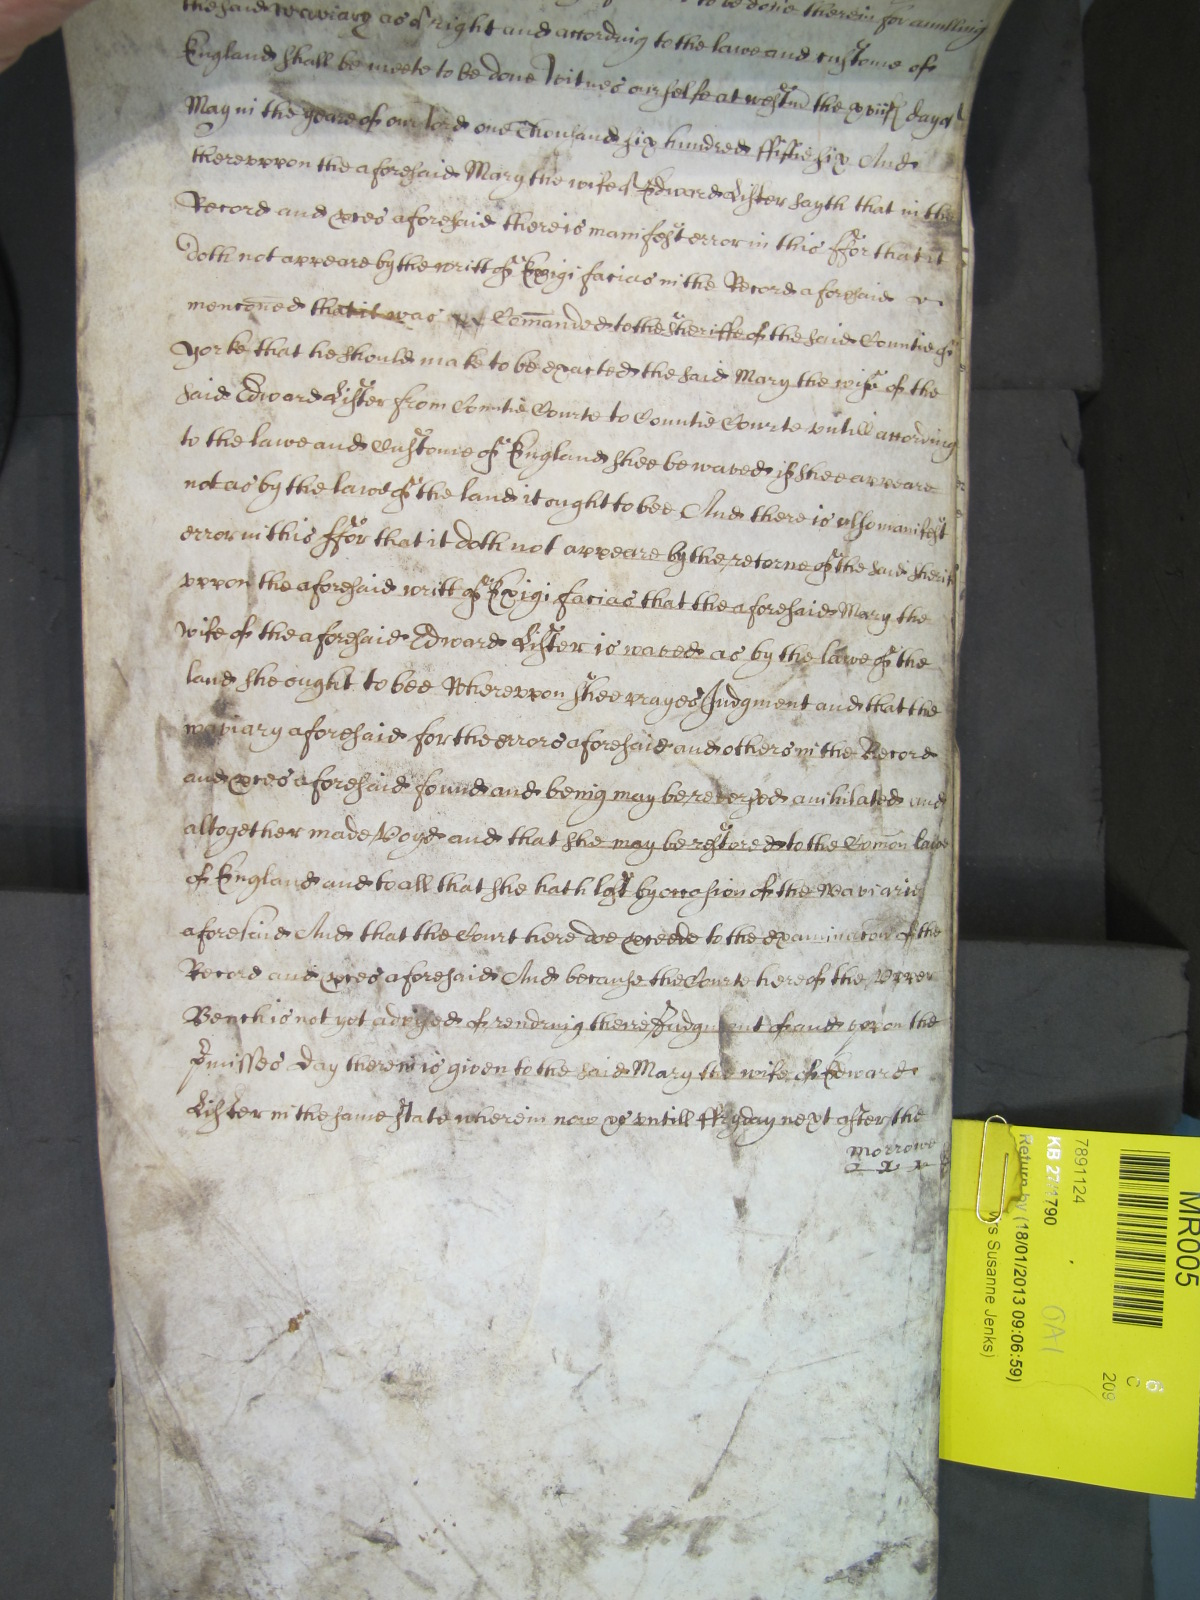 the said waviary as of right and according to the lawe and custome of
to be done therein for anulling
England shall be meete to be done Witnes our selfe at Westm the day of
May in the yeare of our lord one Thousand six hundred ffiftie six And
therevppon the aforesaid Mary the wife of Edward Lister sayth that in the
Record and pces aforesaid there is manifest error in this ffor that it
doth not appeare by the writt of Exigi facias in the Record aforesaid
menconed that it was Comanded to the Sheriffe of the said Countie of
Yorke that he should make to be exacted the said Mary the wife of the
said Edward Lister from Countie Courte to Countie Courte vntill according
to the lawe and Custome of England shee be waved if shee appeare
not as by the lawe of the land it ought to bee And there is also manifest
error in this ffor that it doth not appeare by the retorne of the said Sherif
vppon the aforesaid writt of Exigi facias that the aforesaid Mary the
wife of the aforesaid Edward Lister is waved as by the lawe of the
land she ought to bee Wherevppon shee prayes Judgment and that the
waviary aforesaid for the errors aforesaid and others in the Record
and pces aforesaid found and being may be reversed anihilated and
altogether made voyd and that she may be restored to the Comon lawe
of England and to all that she hath lost by occasion of the waviarie
aforesaid And that the Court here doe pceede to the examinacon of the
Record and pces aforesaid And because the Courte here of the Vpper
Bench is not yet advised of rendring theire Judgment of and vpon the
pmisses day therein is given to the said Mary the wife of Edward
Lister in the same state wherein now &c vntill ffryday next after the
morrowe
MR005
6
C
209
7891124
KB 27/1790
GA1
Return by (18/01/2013 09:06:59)
Susanne Jenks)